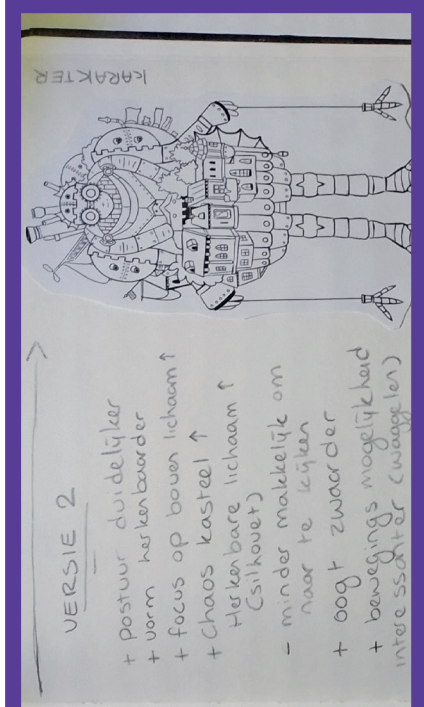 KARAKTER
VERSIE 2
+ postuur duidelijker
+ vorm herkenbaarder
+ focus op boven lichaam ↑
+ chaos kasteel ↑
Herkenbare lichaam ↑
(silhouet)
- minder makkelijk om
naar te kijken
+ oogt zwaarder
+ bewegings mogelijkheid
interessanter (waggelen)